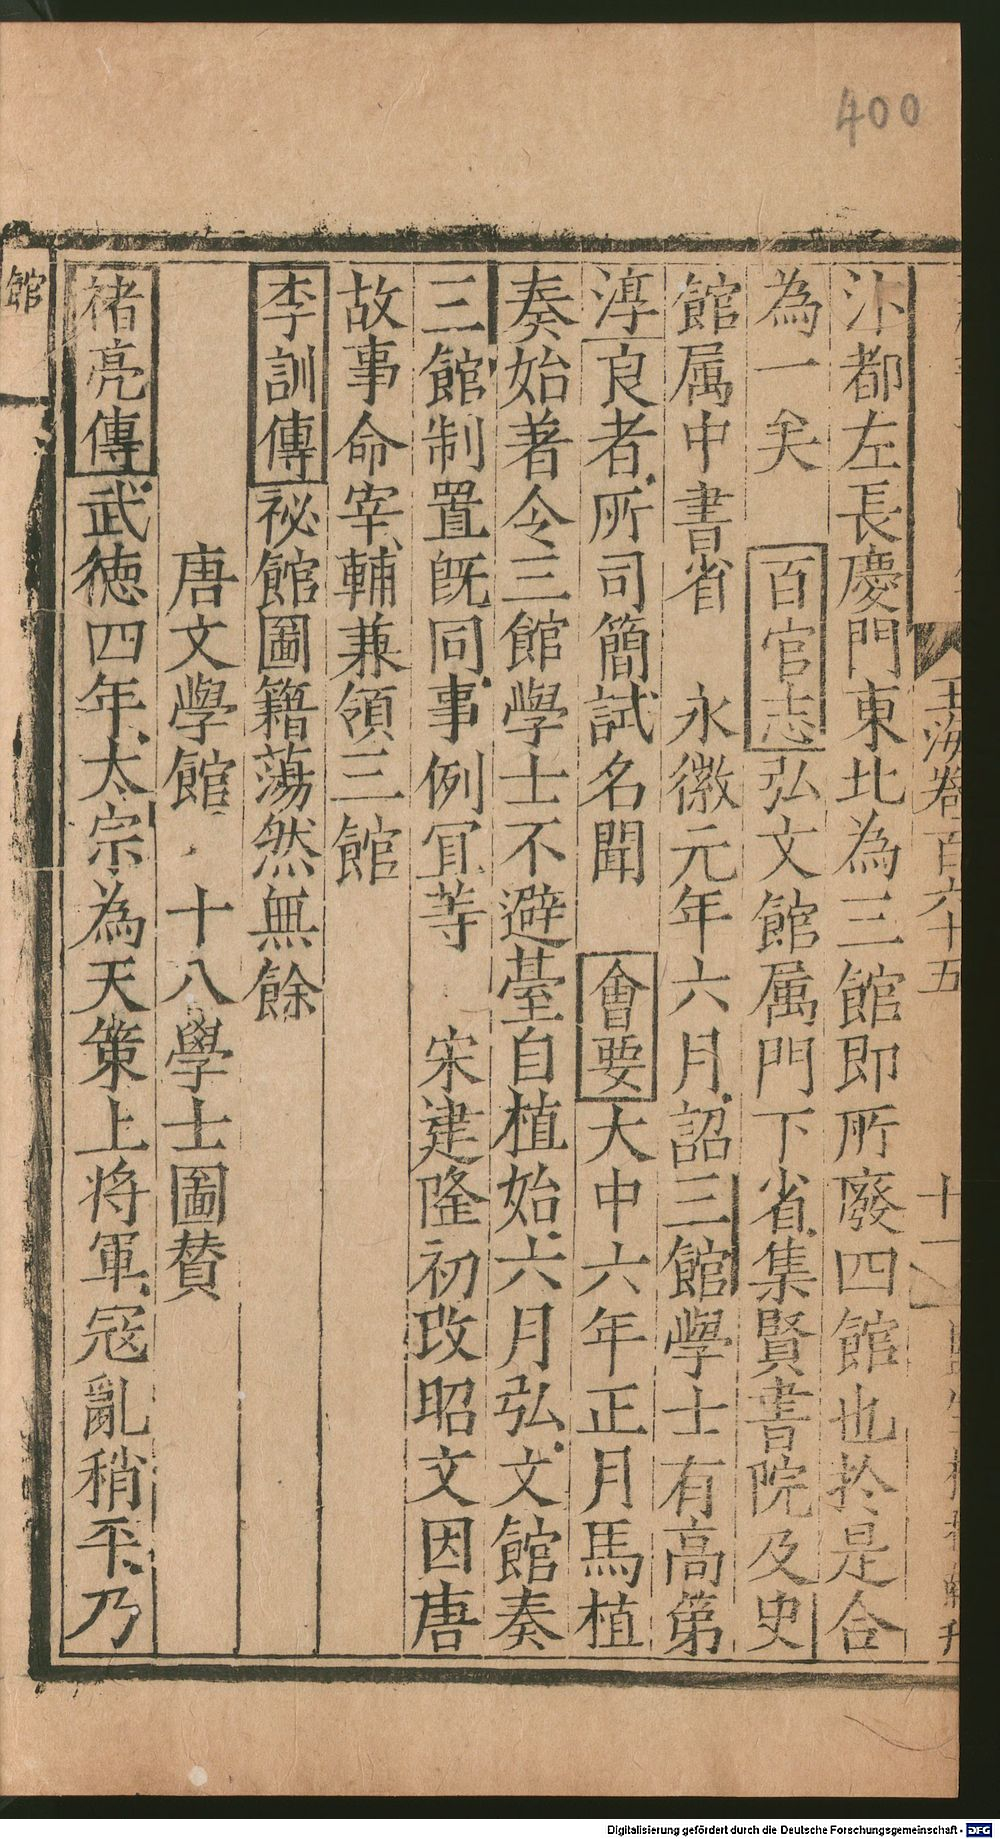 400
玉海卷百六十五
十一
汴都左長慶門東北為三館即所廢四館也於是合
為一矣 百官志弘文館属門下省集賢書院及史
館属中書省 永徽元年六月詔三館學士有高第
淳良者所司簡試名聞 會要大中六年正月馬植
奏始著令三館學士不避臺自植始六月弘文館奏
三館制置旣同事例冝等 宋建隆初改昭文因唐
故事命宰輔兼領三館
李訓傳祕館圖籍蕩然無餘
唐文學館 十八學士圖賛
褚亮傳武徳四年太宗為天策上将軍冦亂稍平乃
館
Digitalisierung gefördert durch die Deutsche Forschungsgemeinschaft - DFG